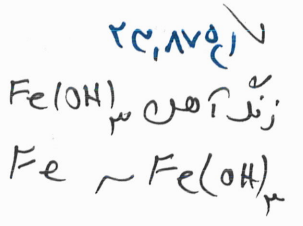 ۲۳,۸۷
زنگ آهن Fe(OH)۳
Fe ~ Fe(OH)۳